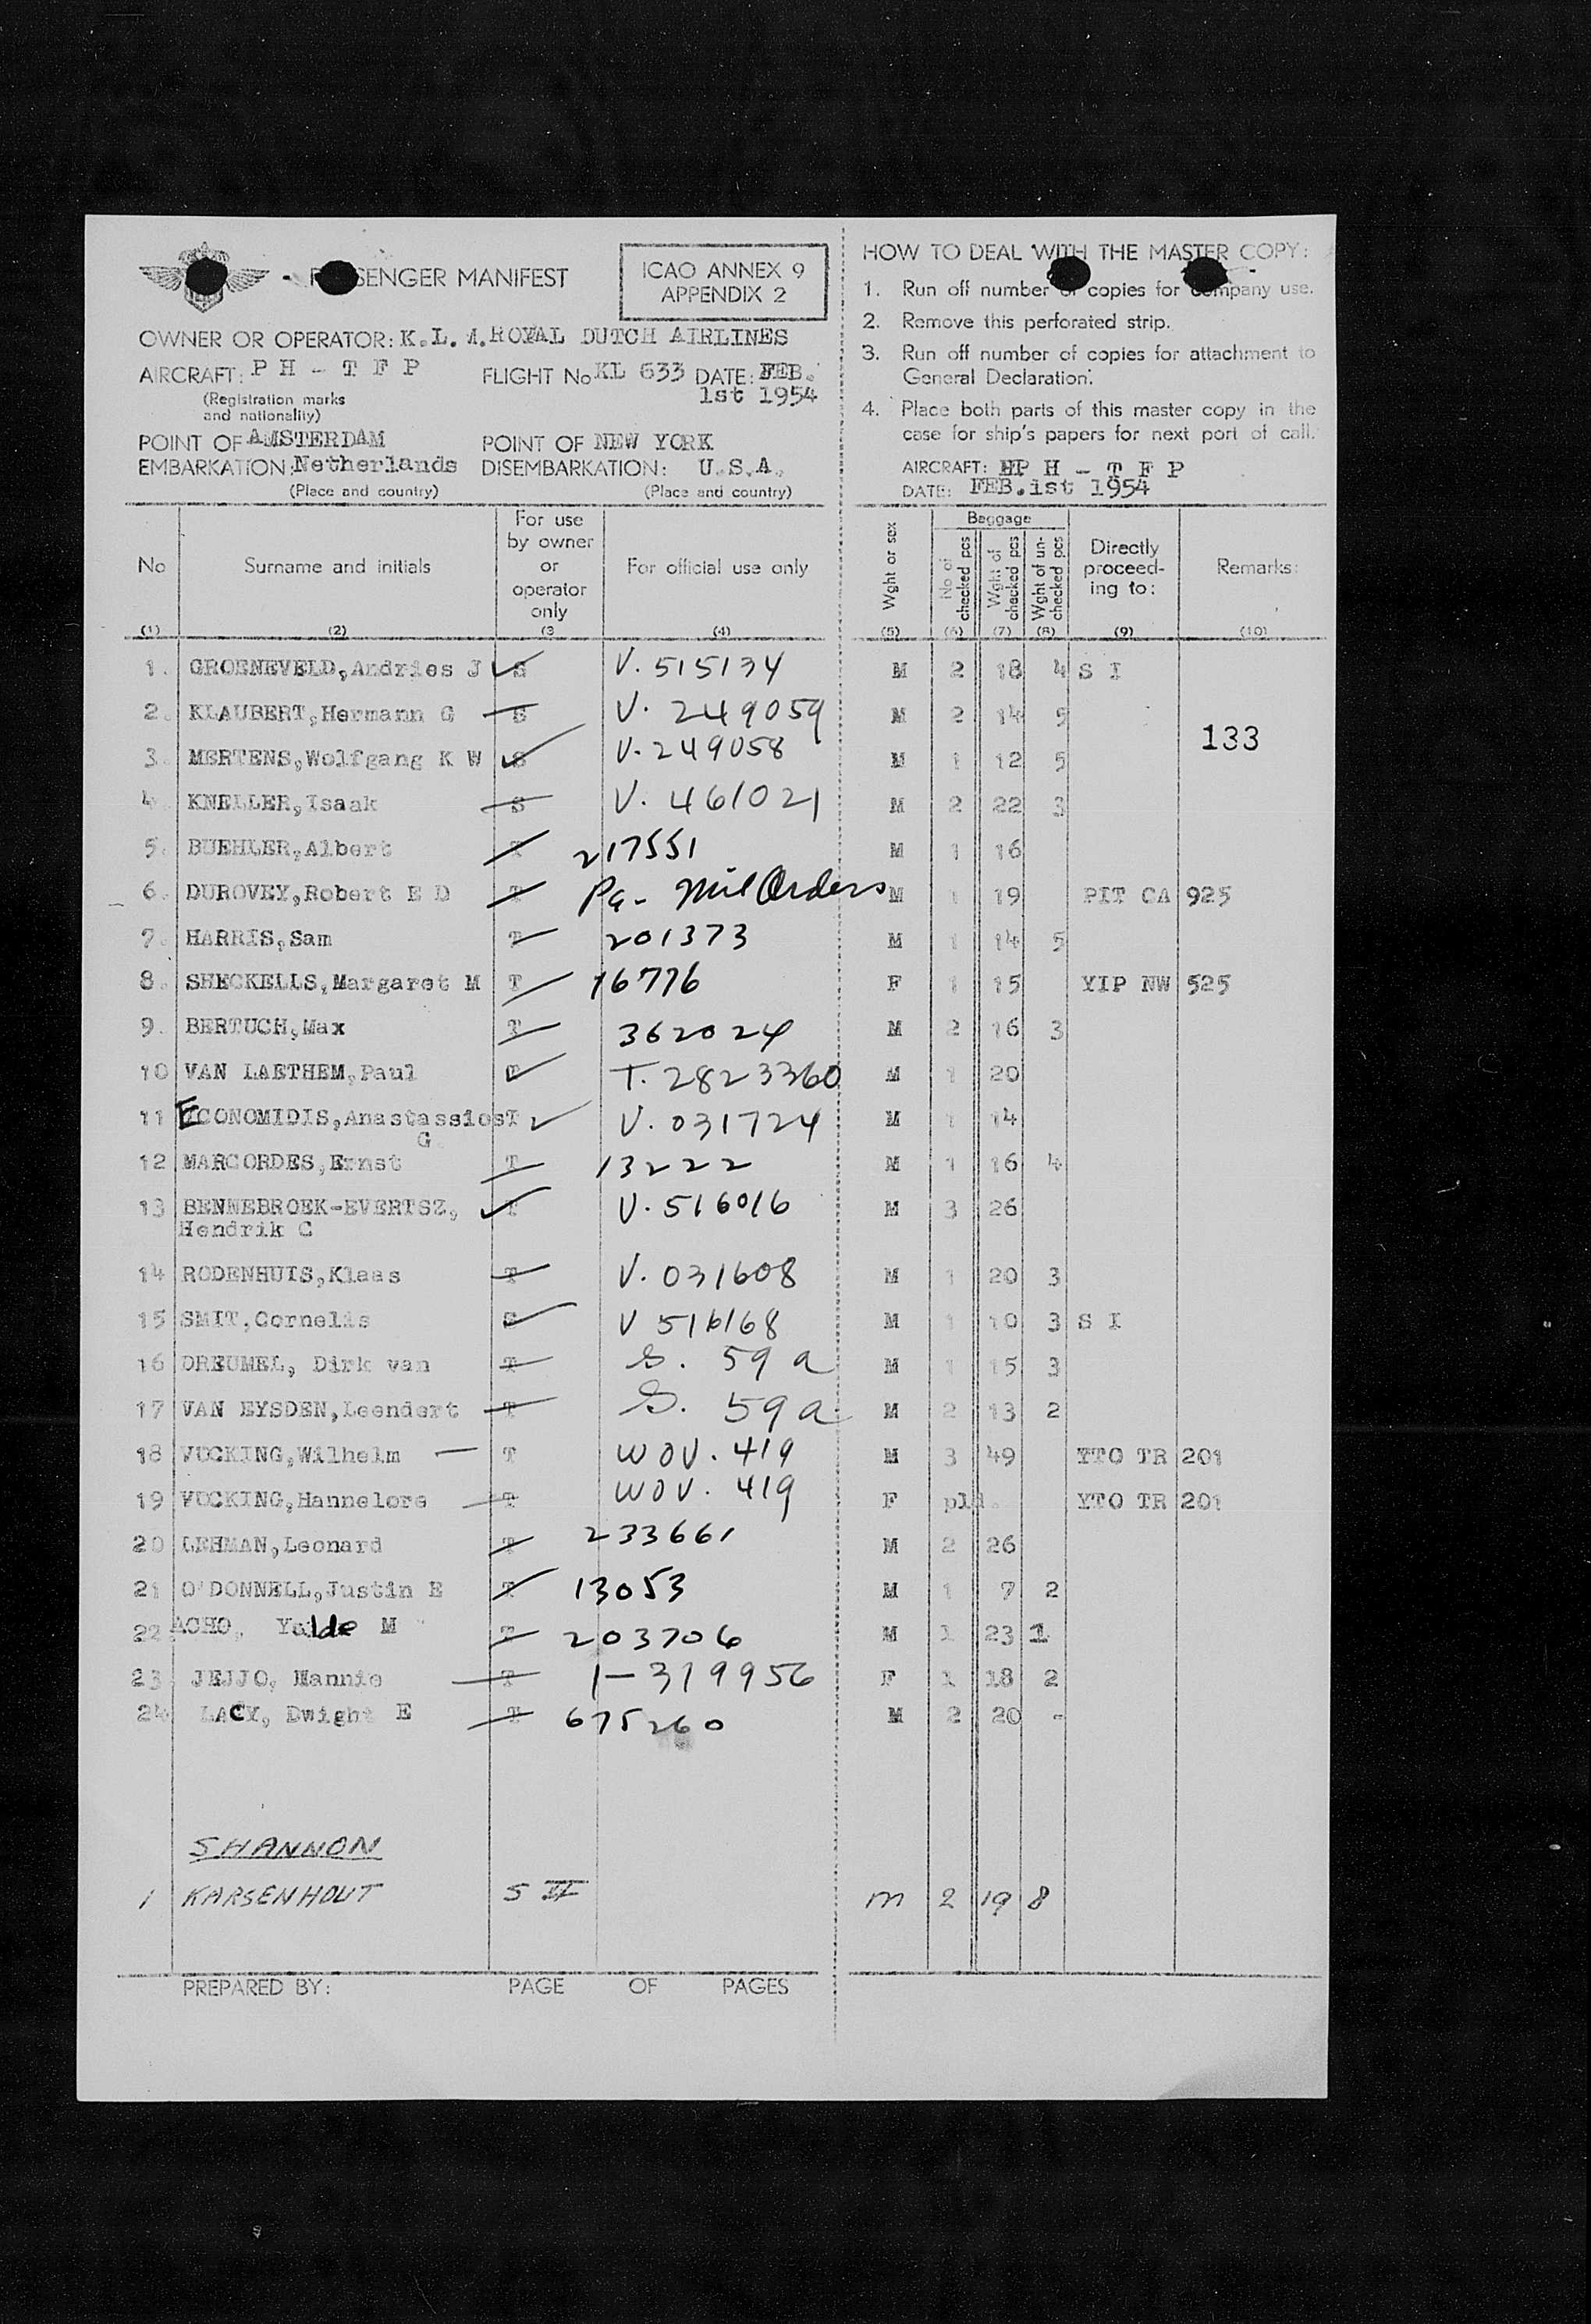 PASSENGER MANIFEST
ICAO ANNEX 9
APPENDIX 2
OWNER OR OPERATOR: K.L.M. ROYAL DUTCH AIRLINES
AIRCRAFT: P H - T F P FLIGHT No KL 633 DATE: FEB.
1st 1954
(Registration marks
and nationality)
POINT OF AMSTERDAM POINT OF NEW YORK
EMBARKATION: Netherlands DISEMBARKATION: U.S.A.
(Place and country) (Place and country)
HOW TO DEAL WITH THE MASTER COPY:
1. Run off number of copies for company use.
2. Remove this perforated strip.
3. Run off number of copies for attachment to
General Declaration.
4. Place both parts of this master copy in the
case for ship's papers for next port of call.
AIRCRAFT: P H - T F P
DATE: FEB.1st 1954
No Surname and initials For use by owner or operator only For official use only Wght or sex Baggage No of checked pcs Wght of checked pcs Wght of un-checked pcs Directly proceed-ing to: Remarks:
(1) (2) (3 (4) (5) (6) (7) (8) (9) (10)
1. GROENEVELD,Andries J S V. 515134 M 2 18 4 S I
2. KLAUBERT,Hermann G S V. 249059 M 2 14 5
133
3. MERTENS,Wolfgang K W S V. 249058 M 1 12 5
4. KNELLER,Isaak S V. 461021 M 2 22 3
5. BUEHLER,Albert T 217551 M 1 16
6. DUROVEY,Robert E D T Mil Orders M 1 19 PIT CA 925
7. HARRIS,Sam T 201373 M 1 14 5
8. SHECKELLS,Margaret M T 16776 F 1 15 YIP NW 525
9. BERTUCH,Max T 362024 M 2 16 3
10 VAN LAETHEM,Paul T T. 2823360 M 1 20
11 ECONOMIDIS,Anastassios T V. 031724 M 1 14
G
12 MARCORDES,Ernst T 13222 M 1 16 4
13 BENNEBROEK-EVERTSZ, T V. 516016 M 3 26
Hendrik C
14 RODENHUIS,Klaas T V. 031608 M 1 20 3
15 SMIT,Cornelis S V 516168 M 1 10 3 S I
16 DREUMEL, Dirk van T S. 59 a M 1 15 3
17 VAN EYSDEN,Leendert T S. 59 a M 2 13 2
18 VUCKING,Wilhelm T WOV. 419 M 3 49 YTO TR 201
19 VUCKING,Hannelore T WOV. 419 F pld. YTO TR 201
20 LEHMAN,Leonard T 233661 M 2 26
21 O'DONNELL,Justin E T 13053 M 1 7 2
22 ACHO, Yalde M T 203706 M 1 23 1
23 JEJJO, Nannie T 1-319956 F 1 18 2
24 LACY, Dwight E T 675260 M 2 20 -
SHANNON
1 KARSENHOUT S II M 2 19 8
PREPARED BY: PAGE OF PAGES